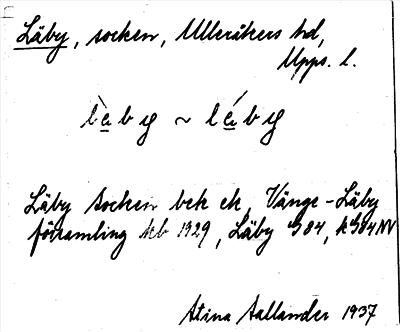 Läby, socken, Ulleråkers hd,
Upps. l.
làby ~ láby
Läby socken bek ek, Vänge-Läby
församling kb 1929, Läby G84, kG84NV
Stina Aallander 1937